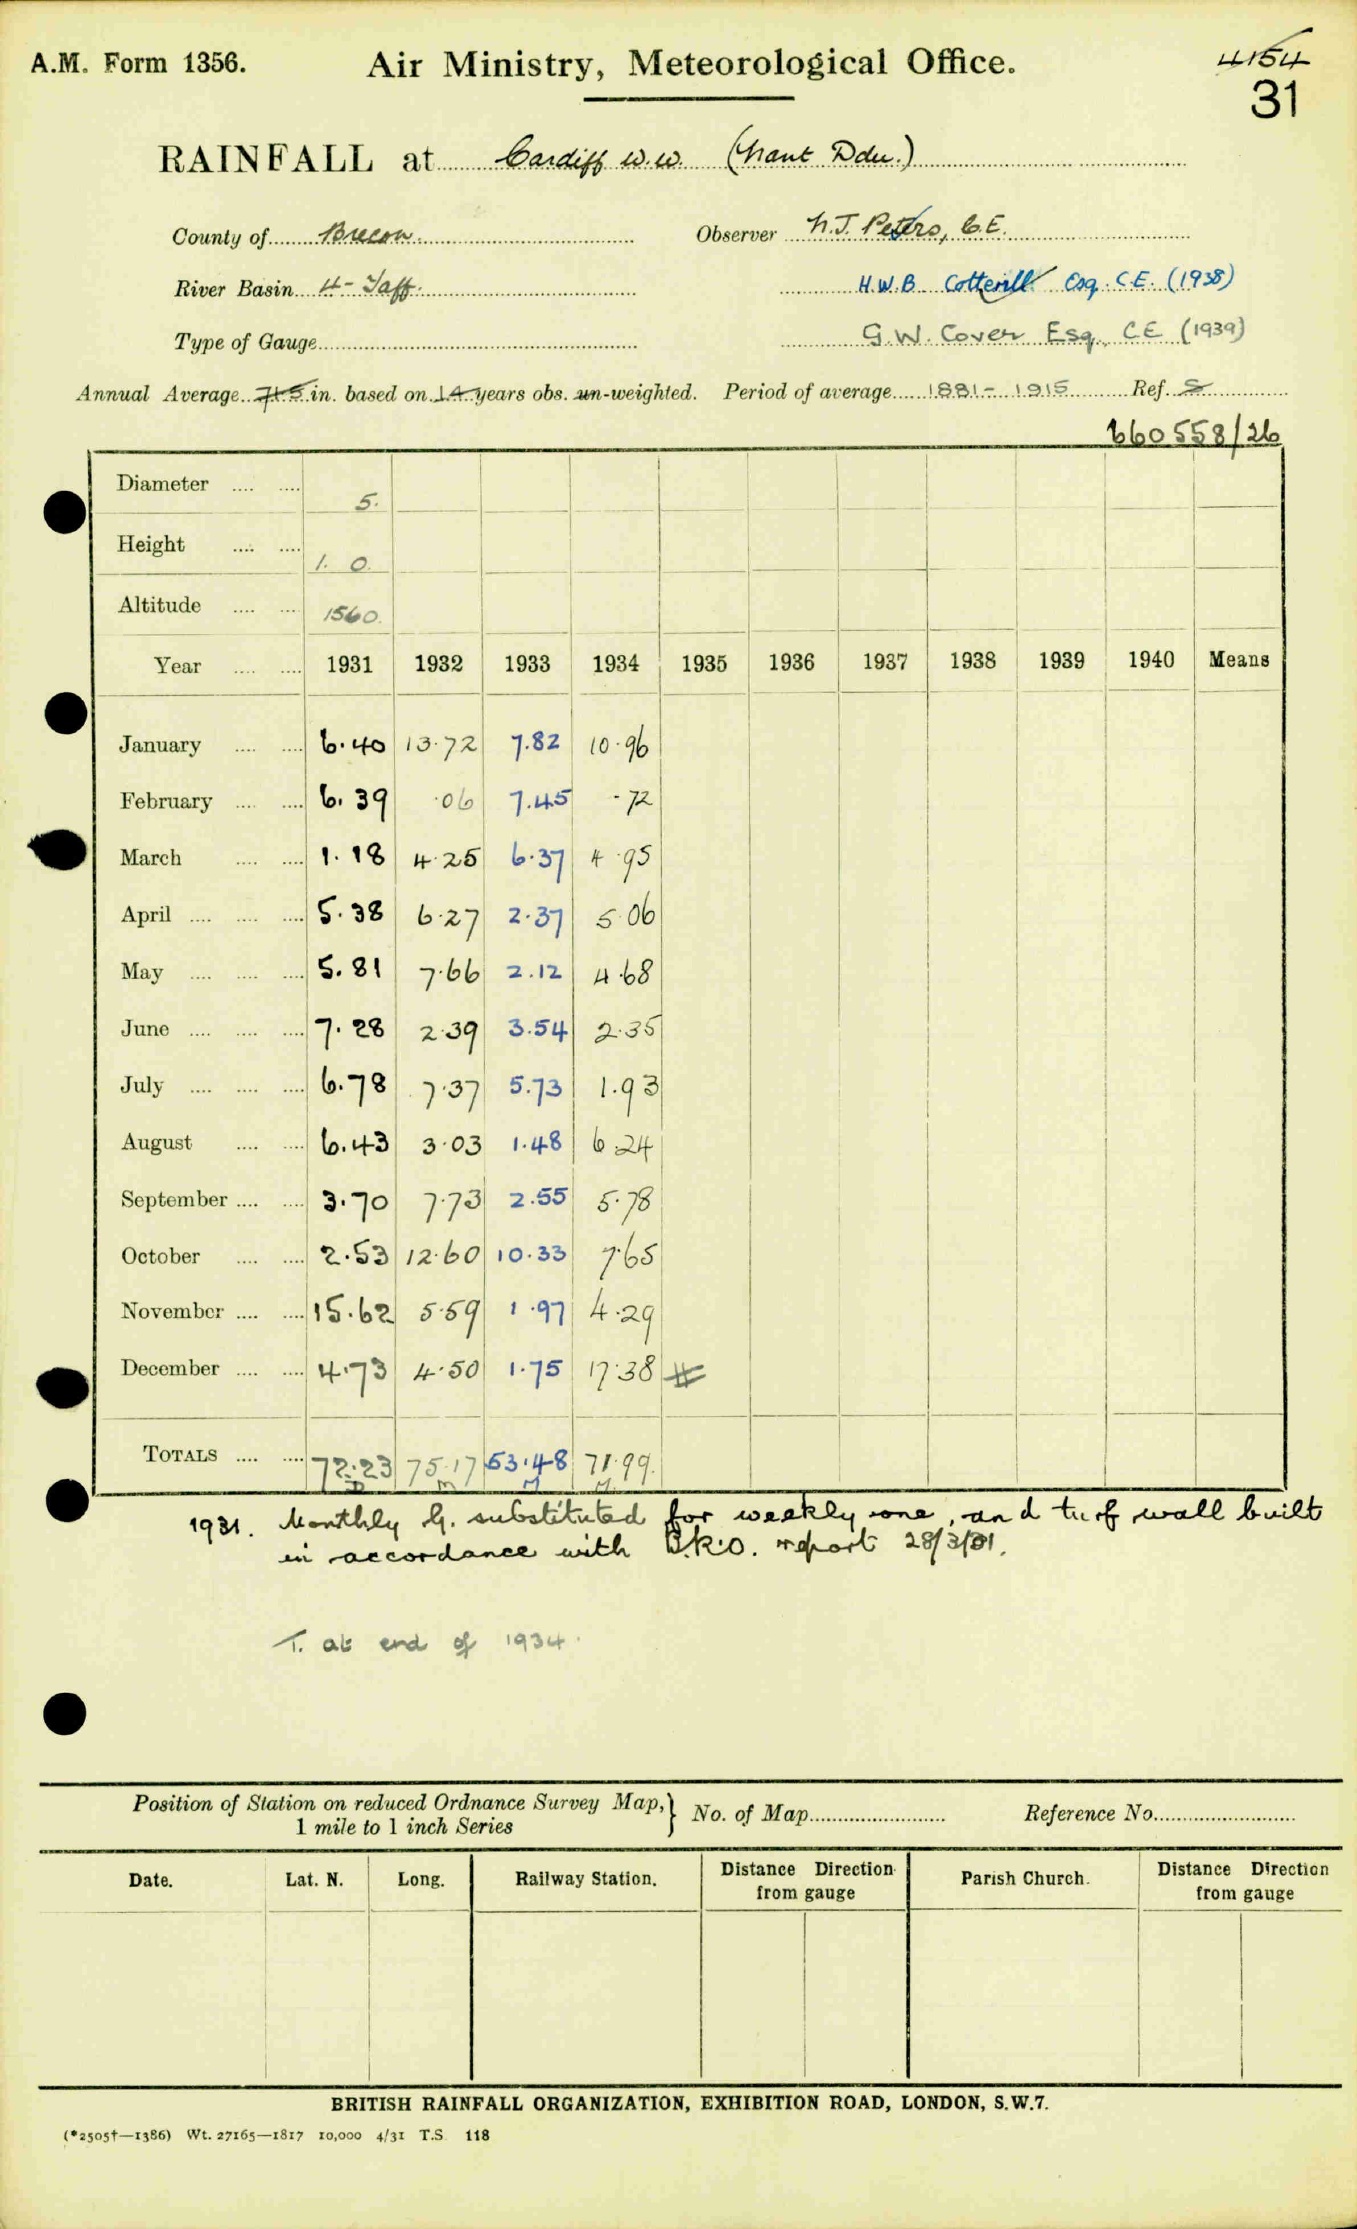 A.M. Form 1356. Air Ministry, Meteorological Office. 4154
31
RAINFALL at Cardiff W.W. (Nant Ddu.)
County of Brecon Observer N.J. Peters, C.E.
River Basin 4 - Taff. H.W.B Cotterill Esq. C.E. (1938)
Type of Gauge G.W. Cover Esq. C.E (1939)
Annual Average 71.5 in. based on 14 years obs. un-weighted. Period of average 1881 - 1915 Ref. S
660558/26
Diameter .... .... 5.
Height .... .... 1. 0.
Altitude .... .... 1560.
Year .... .... 1931 1932 1933 1934 1935 1936 1937 1938 1939 1940 Means
January .... .... 6.40 13.72 7.82 10.96
February .... .... 6.39 .06 7.45 .72
March .... .... 1.18 4.25 6.37 4.95
April .... .... .... 5.38 6.27 2.37 5.06
May .... .... .... 5.81 7.66 2.12 4.68
June .... .... .... 7.28 2.39 3.54 2.35
July .... .... .... 6.78 7.37 5.73 1.93
August .... .... 6.43 3.03 1.48 6.24
September .... .... 3.70 7.73 2.55 5.78
October .... .... 2.53 12.60 10.33 7.65
November .... .... 15.62 5.59 1.97 4.29
December .... .... 4.73 4.50 1.75 17.38
TOTALS .... .... 72.23 75.17 53.48 71.99
1931. Monthly G. substituted for weekly one, and turf wall built
in accordance with B.R.O. report 28/3/31.
T. at end of 1934.
Position of Station on reduced Ordnance Survey Map, } No. of Map Reference No.
1 mile to 1 inch Series
Date. Lat. N. Long. Railway Station. Distance Direction from gauge Parish Church. Distance Direction from gauge
BRITISH RAINFALL ORGANIZATION, EXHIBITION ROAD, LONDON, S.W.7.
(*2505†—1386) Wt. 27165—1817 10,000 4/31 T.S. 118